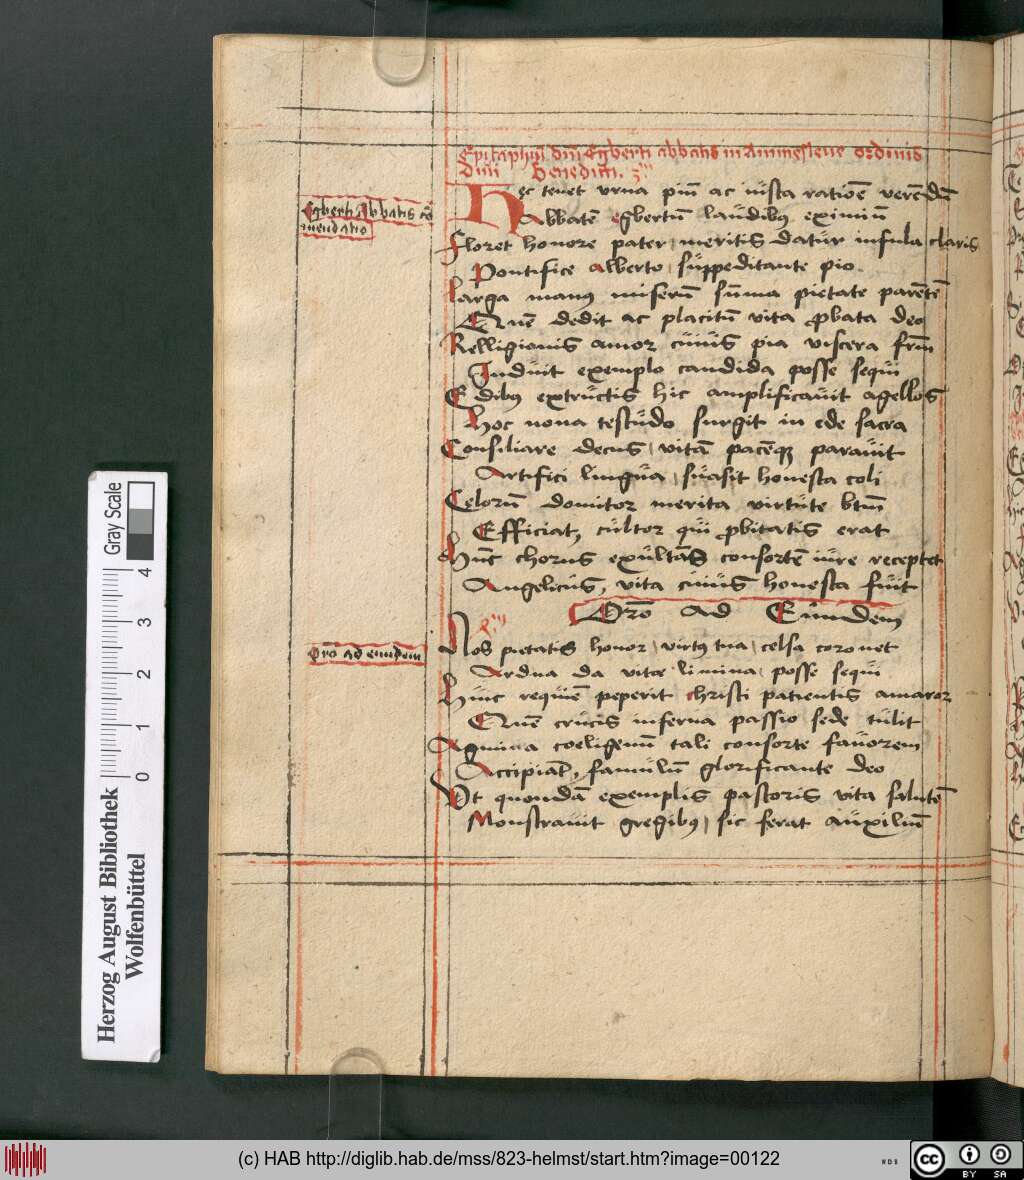 Epitaphiū dn̄i Egberti abbatis in Ammesleue ordinis
Diui Benedicti.
Egberti Abbatis cō
mendatio
Hęc tenet vrna piū ac iusta ratiōe verēdū
Abbatē egbertū laudibꝫ eximiū
Floret honore pater, meritis datur infula claris
Pontifice alberto, suppeditante pio.
Larga manꝫ miserū su̅ma pietate parētē
Quē dedit ac placitū vita ꝓbata deo
Relligionis amor cuius pia viscera frm̄
Induit exemplo candida posse sequi
Edibꝫ extructis hic amplificauit agellos
Hoc noua testudo surgit in ede sacra
Consiliare decus, vitā pacēqꝫ parauit
Artifici lingua, suasit honesta coli
Cęlorū domitor merita virtute btm̄
Efficiat, cultor qui ꝓbitatis erat
Hūc chorus exultās consortē iure receptet
Angelicus, vita cuius honesta fuit
Orō ad Eundem
Orō ad eundem
Nos pietatis honor, virtꝫ tua, celsa coronet
Ardua da vitæ limina, posse sequi
Huic requiē peperit christi patientis amaror
Quē crucis inferna passio sede tulit
Agmina coeligenū tali consorte fauorem
Accipiāt, famulū glorificante deo
Vt quondā exemplis pastoris vita salutē
Monstrauit gregibꝫ, sic ferat auxiliū
Gray Scale
4
3
2
1
0
Herzog August Bibliothek
Wolfenbüttel
(c) HAB http://diglib.hab.de/mss/823-helmst/start.htm?image=00122
WDB
cc
BY SA